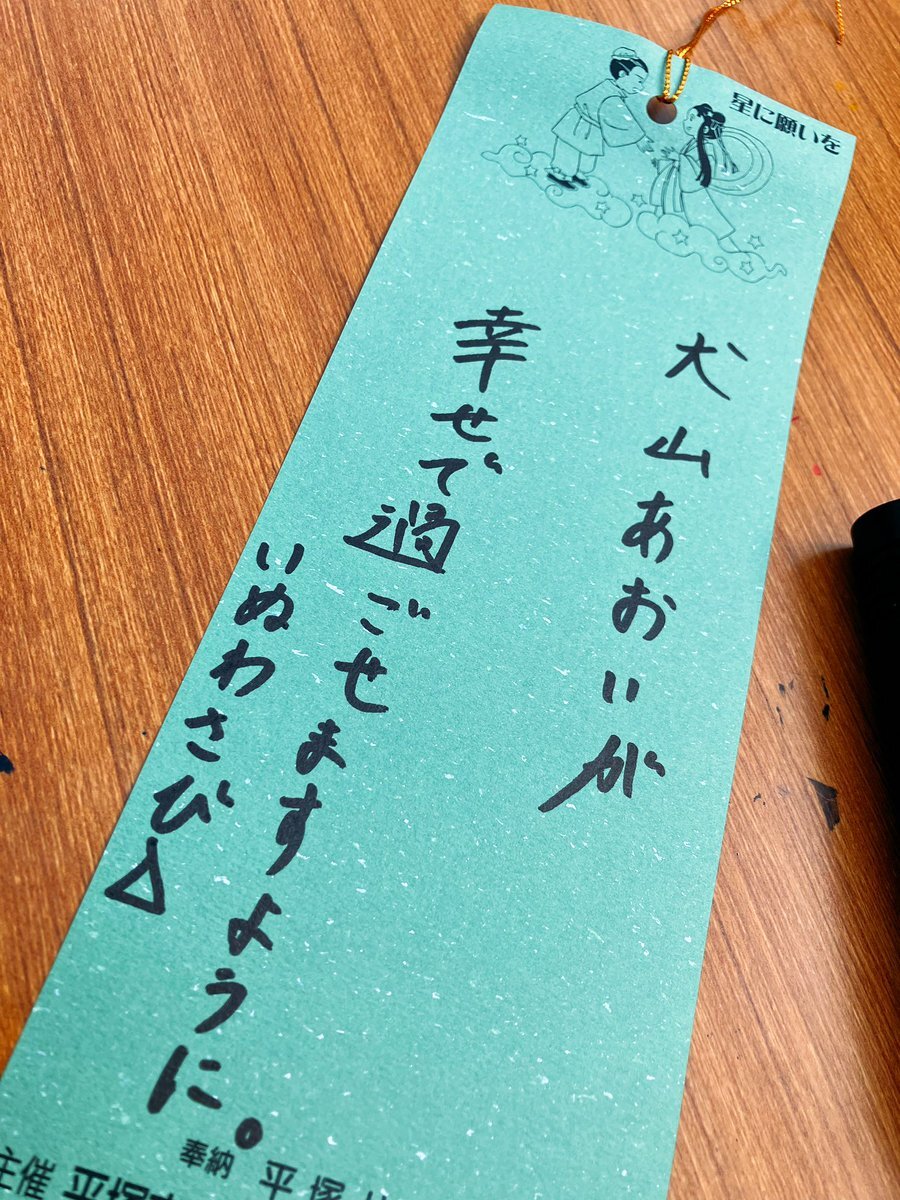 星に願いを
犬山あおいが
幸せで過ごせますように。
いぬわさび△
奉納 平塚
主催 平塚